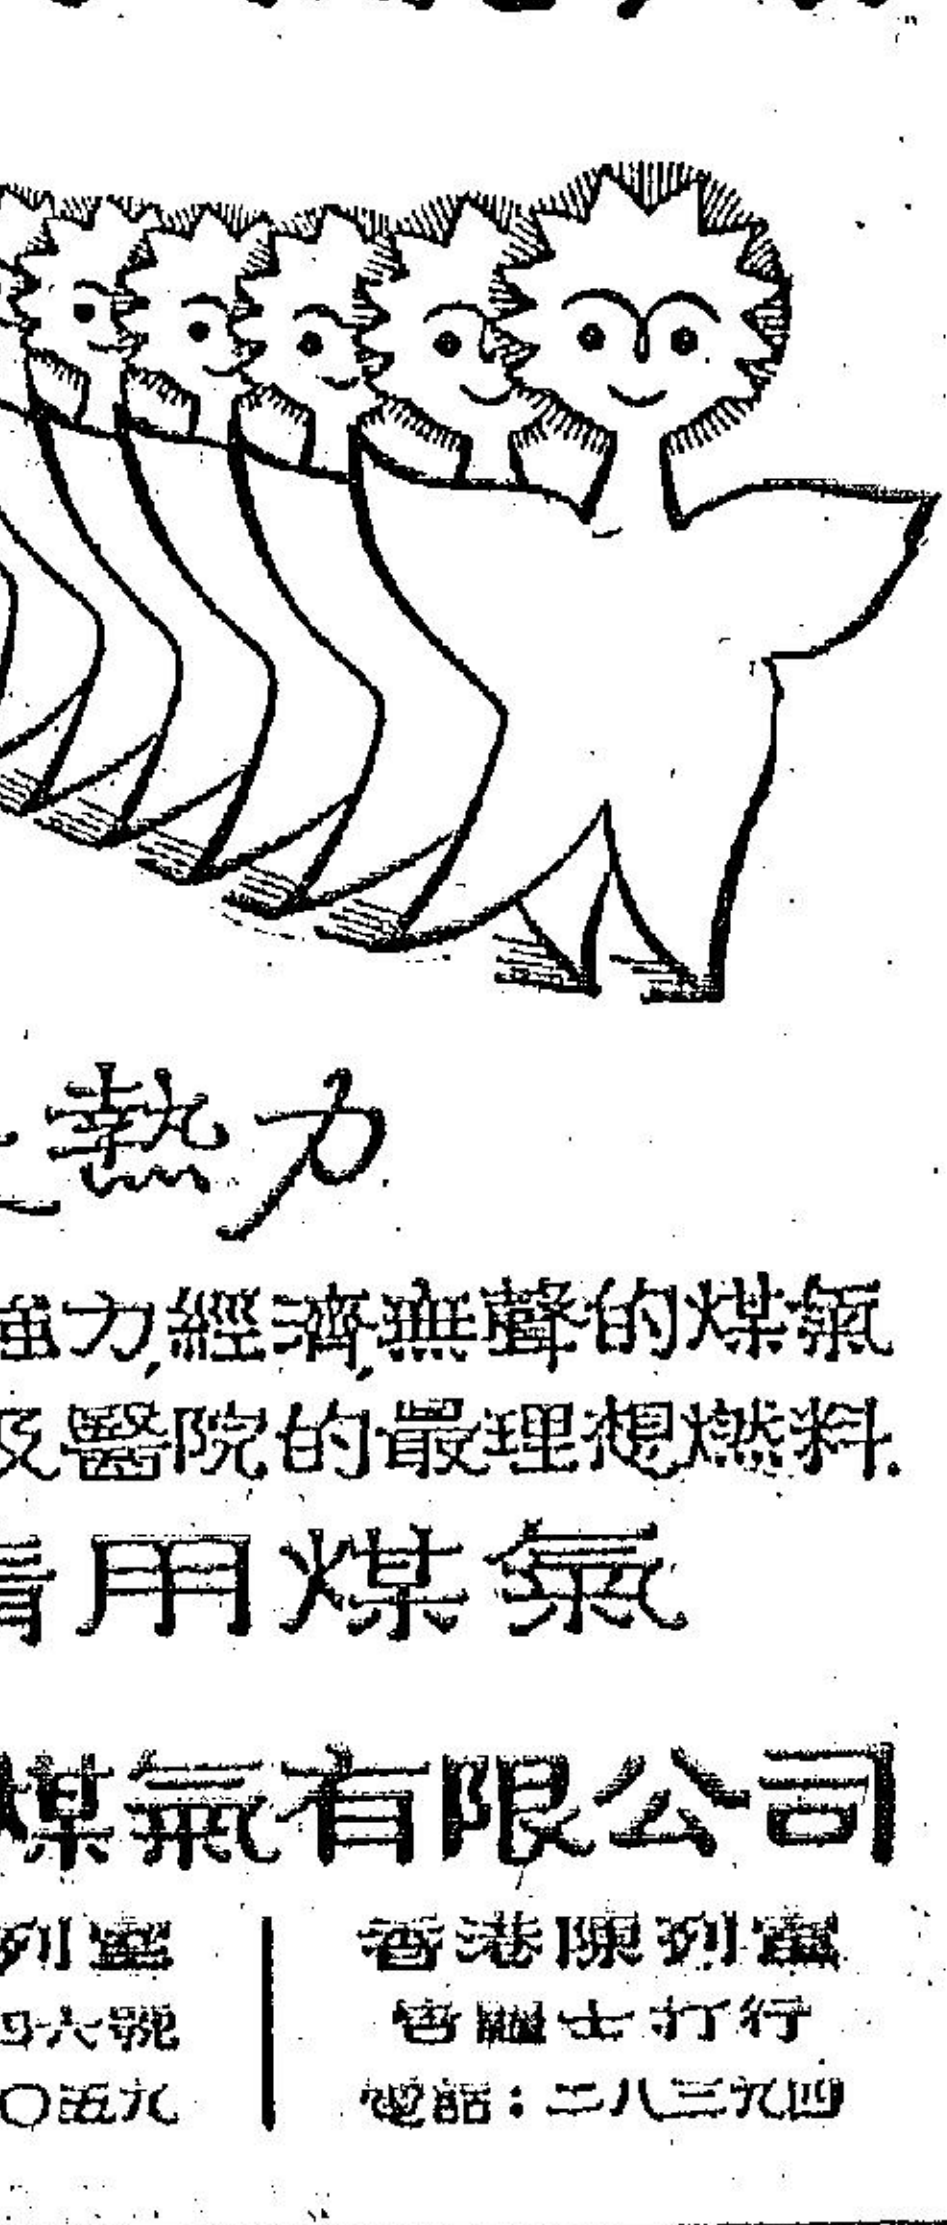 熱力
強力,經濟,無聲的煤氣
及醫院的最理想燃料.
請用煤氣
煤氣有限公司
列室
四六號
〇五九
香港陳列室
告羅士打行
電話：二八三九四